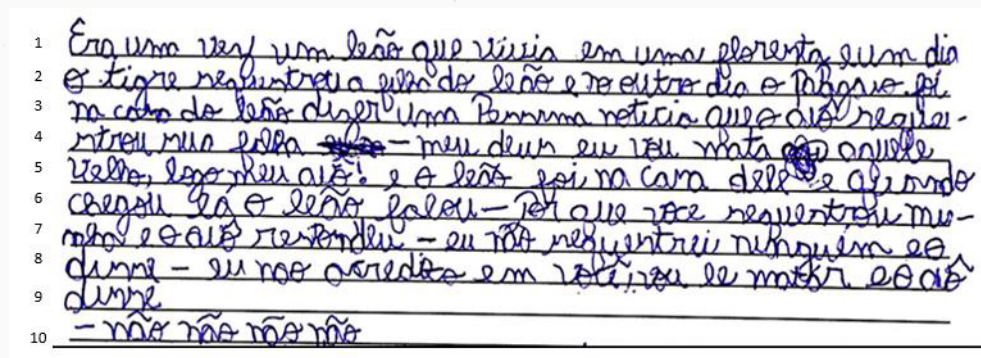 1 Era um vez um leão que vivia em uma floresta, e um dia
2 o tigre sequintrou a filha do leão e no outro dia o Pássaro foi
3 na casa do leão dizer uma Pessima noticia que o avô sequei-
4 ntrou sua filha - meu deus eu vou mata aquele
5 Velho, logo meu avô! e o leão foi, na casa dele e quando
6 chegou lá o leão falou - Por que voce sequentrou mi-
7 nha e o avô respondeu - eu não sequentrei ninguém e o
8 disse - eu não acredito em você, vou le matar e o avô
9 disse
10 - não não não não